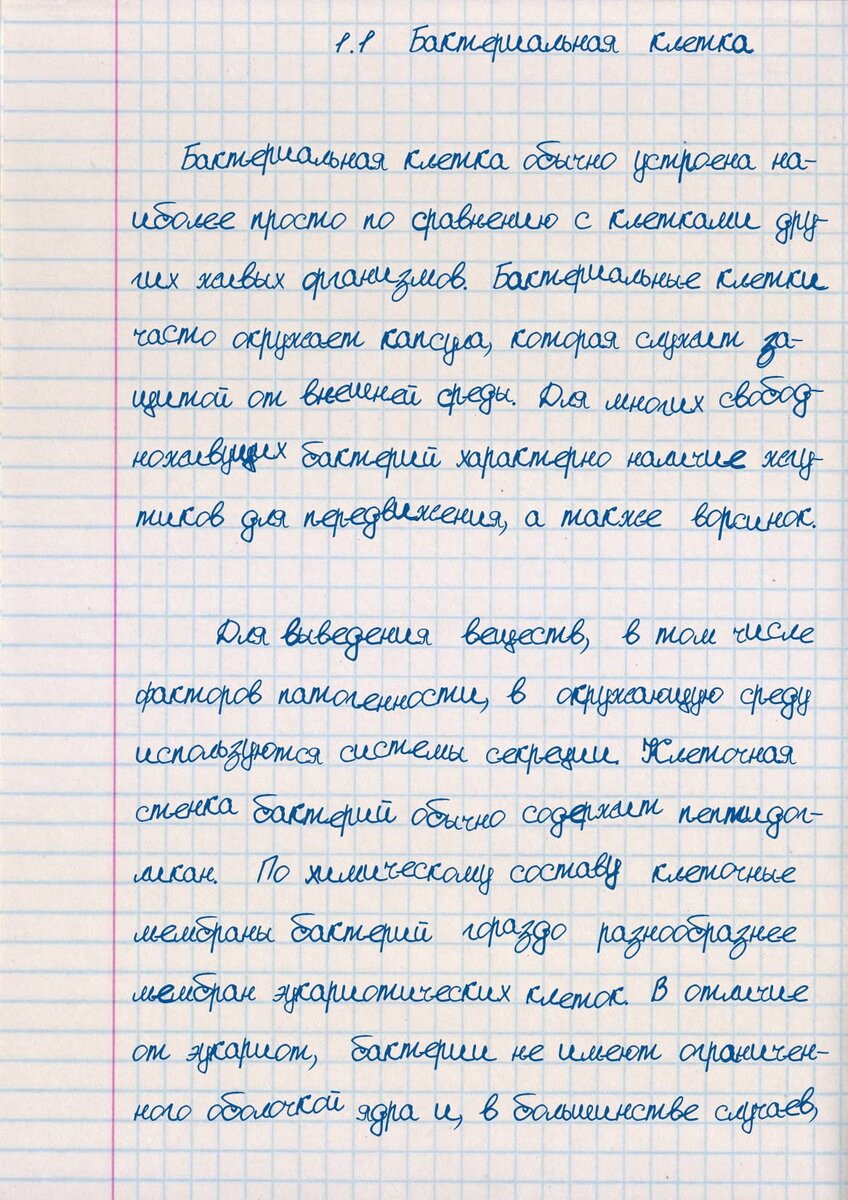 1.1 Бактериальная клетка
Бактериальная клетка обычно устроена на-
иболее просто по сравнению с клетками дру-
гих живых организмов. Бактериальные клетки
часто окружает капсула, которая служит за-
щитой от внешней среды. Для многих свобод-
ноживущих бактерий характерно наличие жгу-
тиков для передвижения, а также ворсинок.
Для выведения веществ, в том числе
факторов патогенности, в окружающую среду
используются системы секреции. Клеточная
стенка бактерий обычно содержит пептидог-
ликан. По химическому составу клеточные
мембраны бактерий гораздо разнообразнее
мембран эукариотических клеток. В отличие
от эукариот, бактерии не имеют ограничен-
ного оболочкой ядра и, в большинстве случаев,